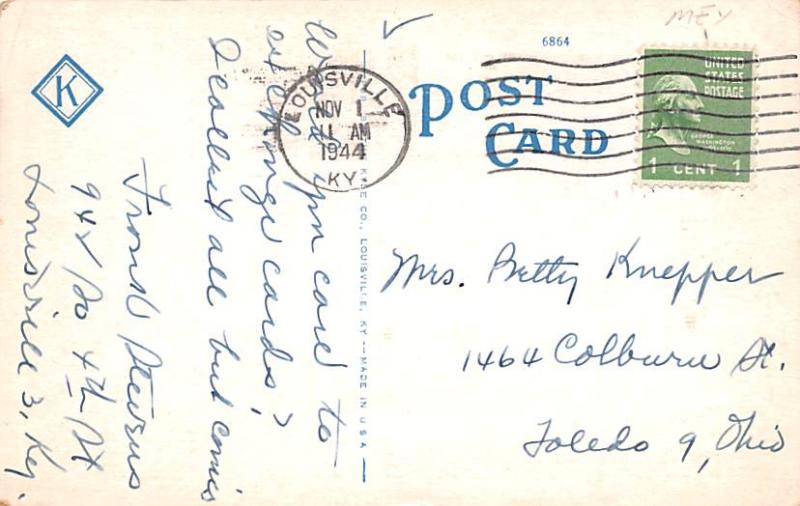 MEY
6864
K
POST
CARD
LOUISVILLE
NOV 1
11 AM
1944
KY.
UNITED
STATES
POSTAGE
GEORGE
WASHINGTON
1 CENT 1
Would you care to
exchange cards?
I collect all but comics
Frank Stevens
942 So 4th St
Louisville 3, Ky.
CO., LOUISVILLE, KY — MADE IN U S A
Mrs. Betty Knepper
1464 Colburn St.
Toledo 9, Ohio